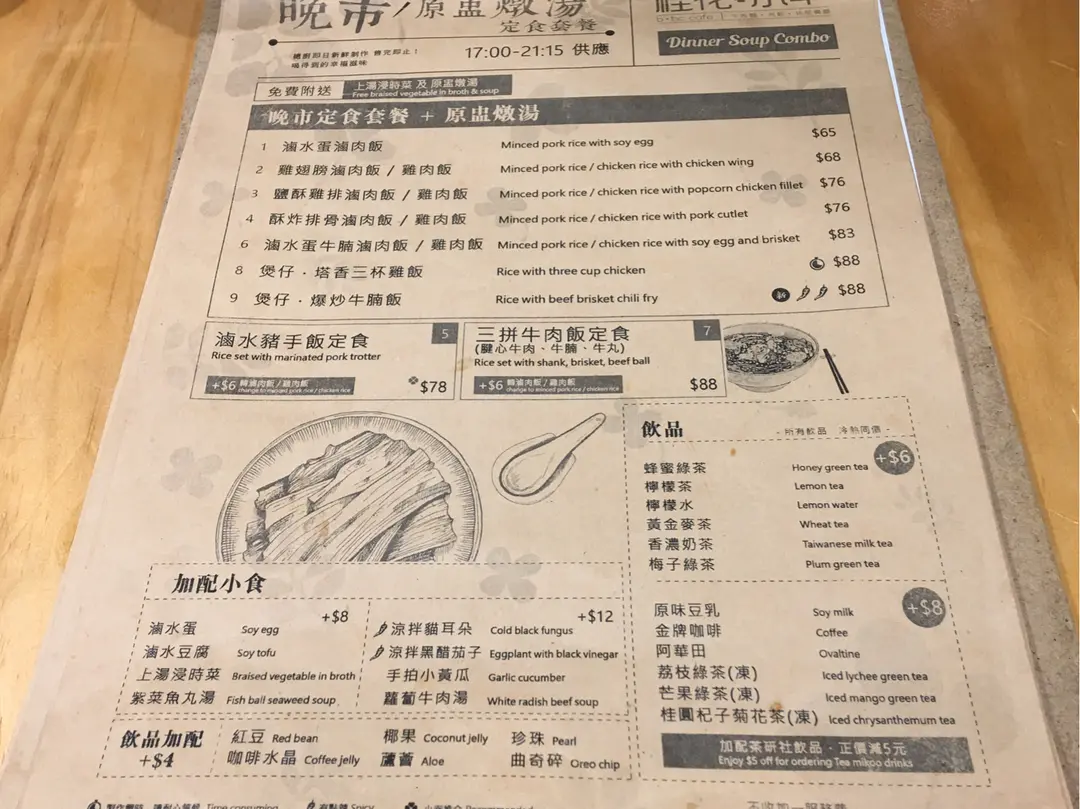 晚市/原盅燉湯
定食套餐
17:00-21:15 供應
Dinner Soup Combo
免費附送
上湯浸時菜 及 原盅燉湯
Free braised vegetable in broth & soup
晚市定食套餐 + 原盅燉湯
1 滷水蛋滷肉飯 Minced pork rice with soy egg $65
2 雞翅膀滷肉飯 / 雞肉飯 Minced pork rice / chicken rice with chicken wing $68
3 鹽酥雞排滷肉飯 / 雞肉飯 Minced pork rice / chicken rice with popcorn chicken fillet $76
4 酥炸排骨滷肉飯 / 雞肉飯 Minced pork rice / chicken rice with pork cutlet $76
6 滷水蛋牛腩滷肉飯 / 雞肉飯 Minced pork rice / chicken rice with soy egg and brisket $83
8 煲仔·塔香三杯雞飯 Rice with three cup chicken $88
9 煲仔·爆炒牛腩飯 Rice with beef brisket chili fry 新 $88
滷水豬手飯定食 5
Rice set with marinated pork trotter
+$6 轉滷肉飯 / 雞肉飯
change to minced pork rice / chicken rice
$78
三拼牛肉飯定食 7
(腱心牛肉、牛腩、牛丸)
Rice set with shank, brisket, beef ball
+$6 轉滷肉飯 / 雞肉飯
change to minced pork rice / chicken rice
$88
飲品 - 所有飲品 冷熱同價 -
+$6
蜂蜜綠茶 Honey green tea
檸檬茶 Lemon tea
檸檬水 Lemon water
黃金麥茶 Wheat tea
香濃奶茶 Taiwanese milk tea
梅子綠茶 Plum green tea
+$8
原味豆乳 Soy milk
金牌咖啡 Coffee
阿華田 Ovaltine
荔枝綠茶(凍) Iced lychee green tea
芒果綠茶(凍) Iced mango green tea
桂圓杞子菊花茶(凍) Iced chrysanthemum tea
加配茶研社飲品·正價減5元
Enjoy $5 off for ordering Tea mikoo drinks
加配小食
+$8
滷水蛋 Soy egg
滷水豆腐 Soy tofu
上湯浸時菜 Braised vegetable in broth
紫菜魚丸湯 Fish ball seaweed soup
+$12
涼拌貓耳朵 Cold black fungus
涼拌黑醋茄子 Eggplant with black vinegar
手拍小黃瓜 Garlic cucumber
蘿蔔牛肉湯 White radish beef soup
飲品加配
+$4
紅豆 Red bean 椰果 Coconut jelly 珍珠 Pearl
咖啡水晶 Coffee jelly 蘆薈 Aloe 曲奇碎 Oreo chip
Time consuming Spicy Recommended